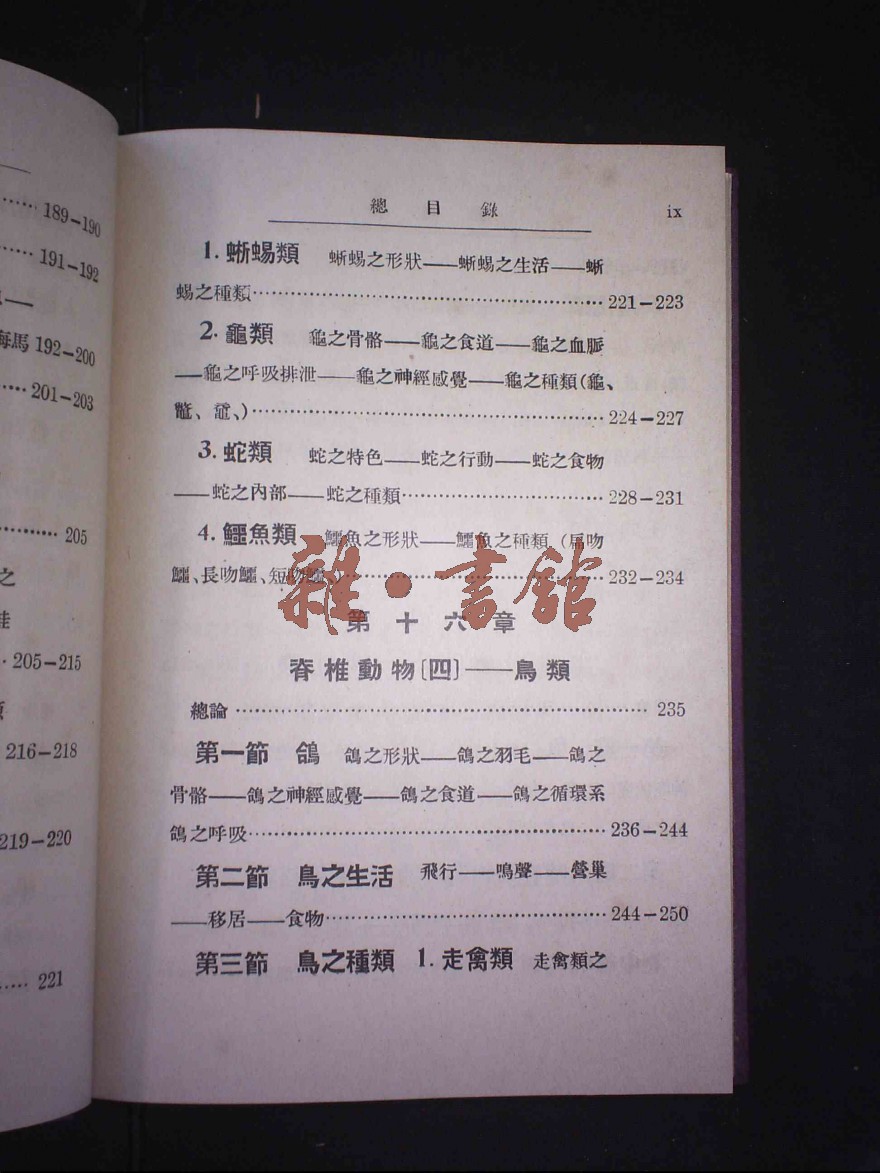 189–190
191–192
海馬 192–200
201–203
205
之
205–215
216–218
219–220
221
總目錄 ix
1. 蜥蜴類 蜥蜴之形狀——蜥蜴之生活——蜥
蜴之種類…………221–223
2. 龜類 龜之骨骼——龜之食道——龜之血脈
——龜之呼吸排泄——龜之神經感覺——龜之種類(龜、
鼈、黿、)…………224–227
3. 蛇類 蛇之特色——蛇之行動——蛇之食物
——蛇之內部——蛇之種類…………228–231
4. 鱷魚類 鱷魚之形狀——鱷魚之種類(扁吻
鱷、長吻鱷、短吻鱷)…………232–234
雜·書館
第十六章
脊椎動物〔四〕——鳥類
總論…………235
第一節 鴿 鴿之形狀——鴿之羽毛——鴿之
骨骼——鴿之神經感覺——鴿之食道——鴿之循環系
鴿之呼吸…………236–244
第二節 鳥之生活 飛行——鳴聲——營巢
——移居——食物…………244–250
第三節 鳥之種類 1. 走禽類 走禽類之